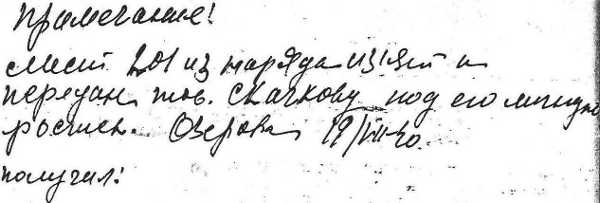 Примечание!
Лист 201 из наряда изъят и
передан тов. Скачкову под его личную
роспись. Озерова 19/VIII-40.
получил: